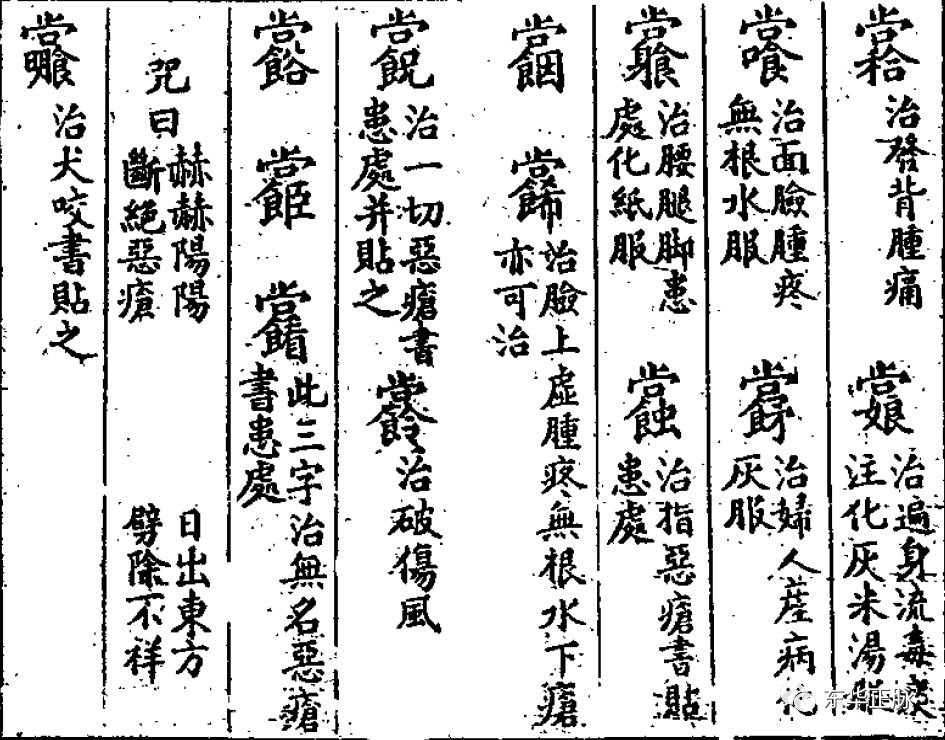 治發背腫痛
治遍身流毒
注化灰米湯
治面臉腫疼
無根水服
治婦人產病化
灰服
治腰腿脚患
處化紙服
治指惡瘡書貼
患處
治臉上虛腫疼無根水下瘡
亦可治
治一切惡瘡書
患處并貼之
治破傷風
此三字治無名惡瘡
書患處
咒曰
赫赫陽陽 日出東方
斷絕惡瘡 劈除不祥
治犬咬書貼之
东华正脉